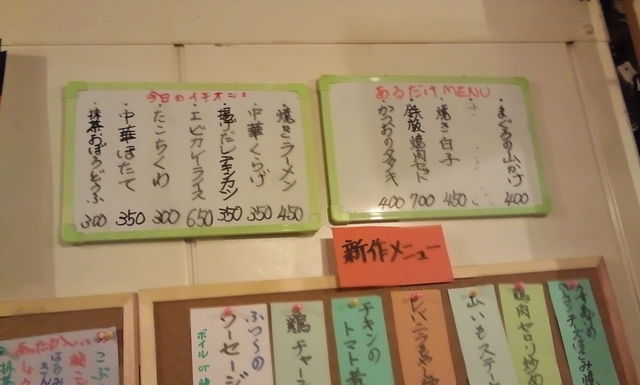 今日のイチオシ
焼きラーメン 450
中華くらげ 350
揚げたレアチキカツ 350
エビカレーライス 650
たこちくわ 300
中華ほたて 350
抹茶おぼろどうふ 300
あるだけMENU
まぐろの山かけ 400
焼き白子 450
鉄板焼肉セット 700
かつおのタタキ 400
新作メニュー
ふつ〜の
ソーセージ
ボイル or
鶏チャー
チキンの
トマト煮
レバニラ
山いもステー
鶏肉セロリ炒め
あったか〜い
こぶ